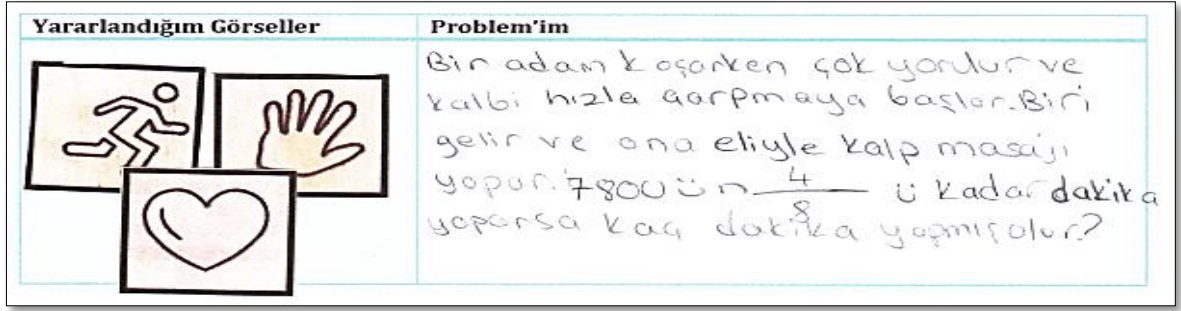 Yararlandığım Görseller
Problem'im
Bir adam koşarken çok yorulur ve
kalbi hızla çarpmaya başlar. Biri
gelir ve ona eliyle kalp masajı
yapar. 7800 ün 4/8 ü kadar dakika
yaparsa kaç dakika yapmış olur?